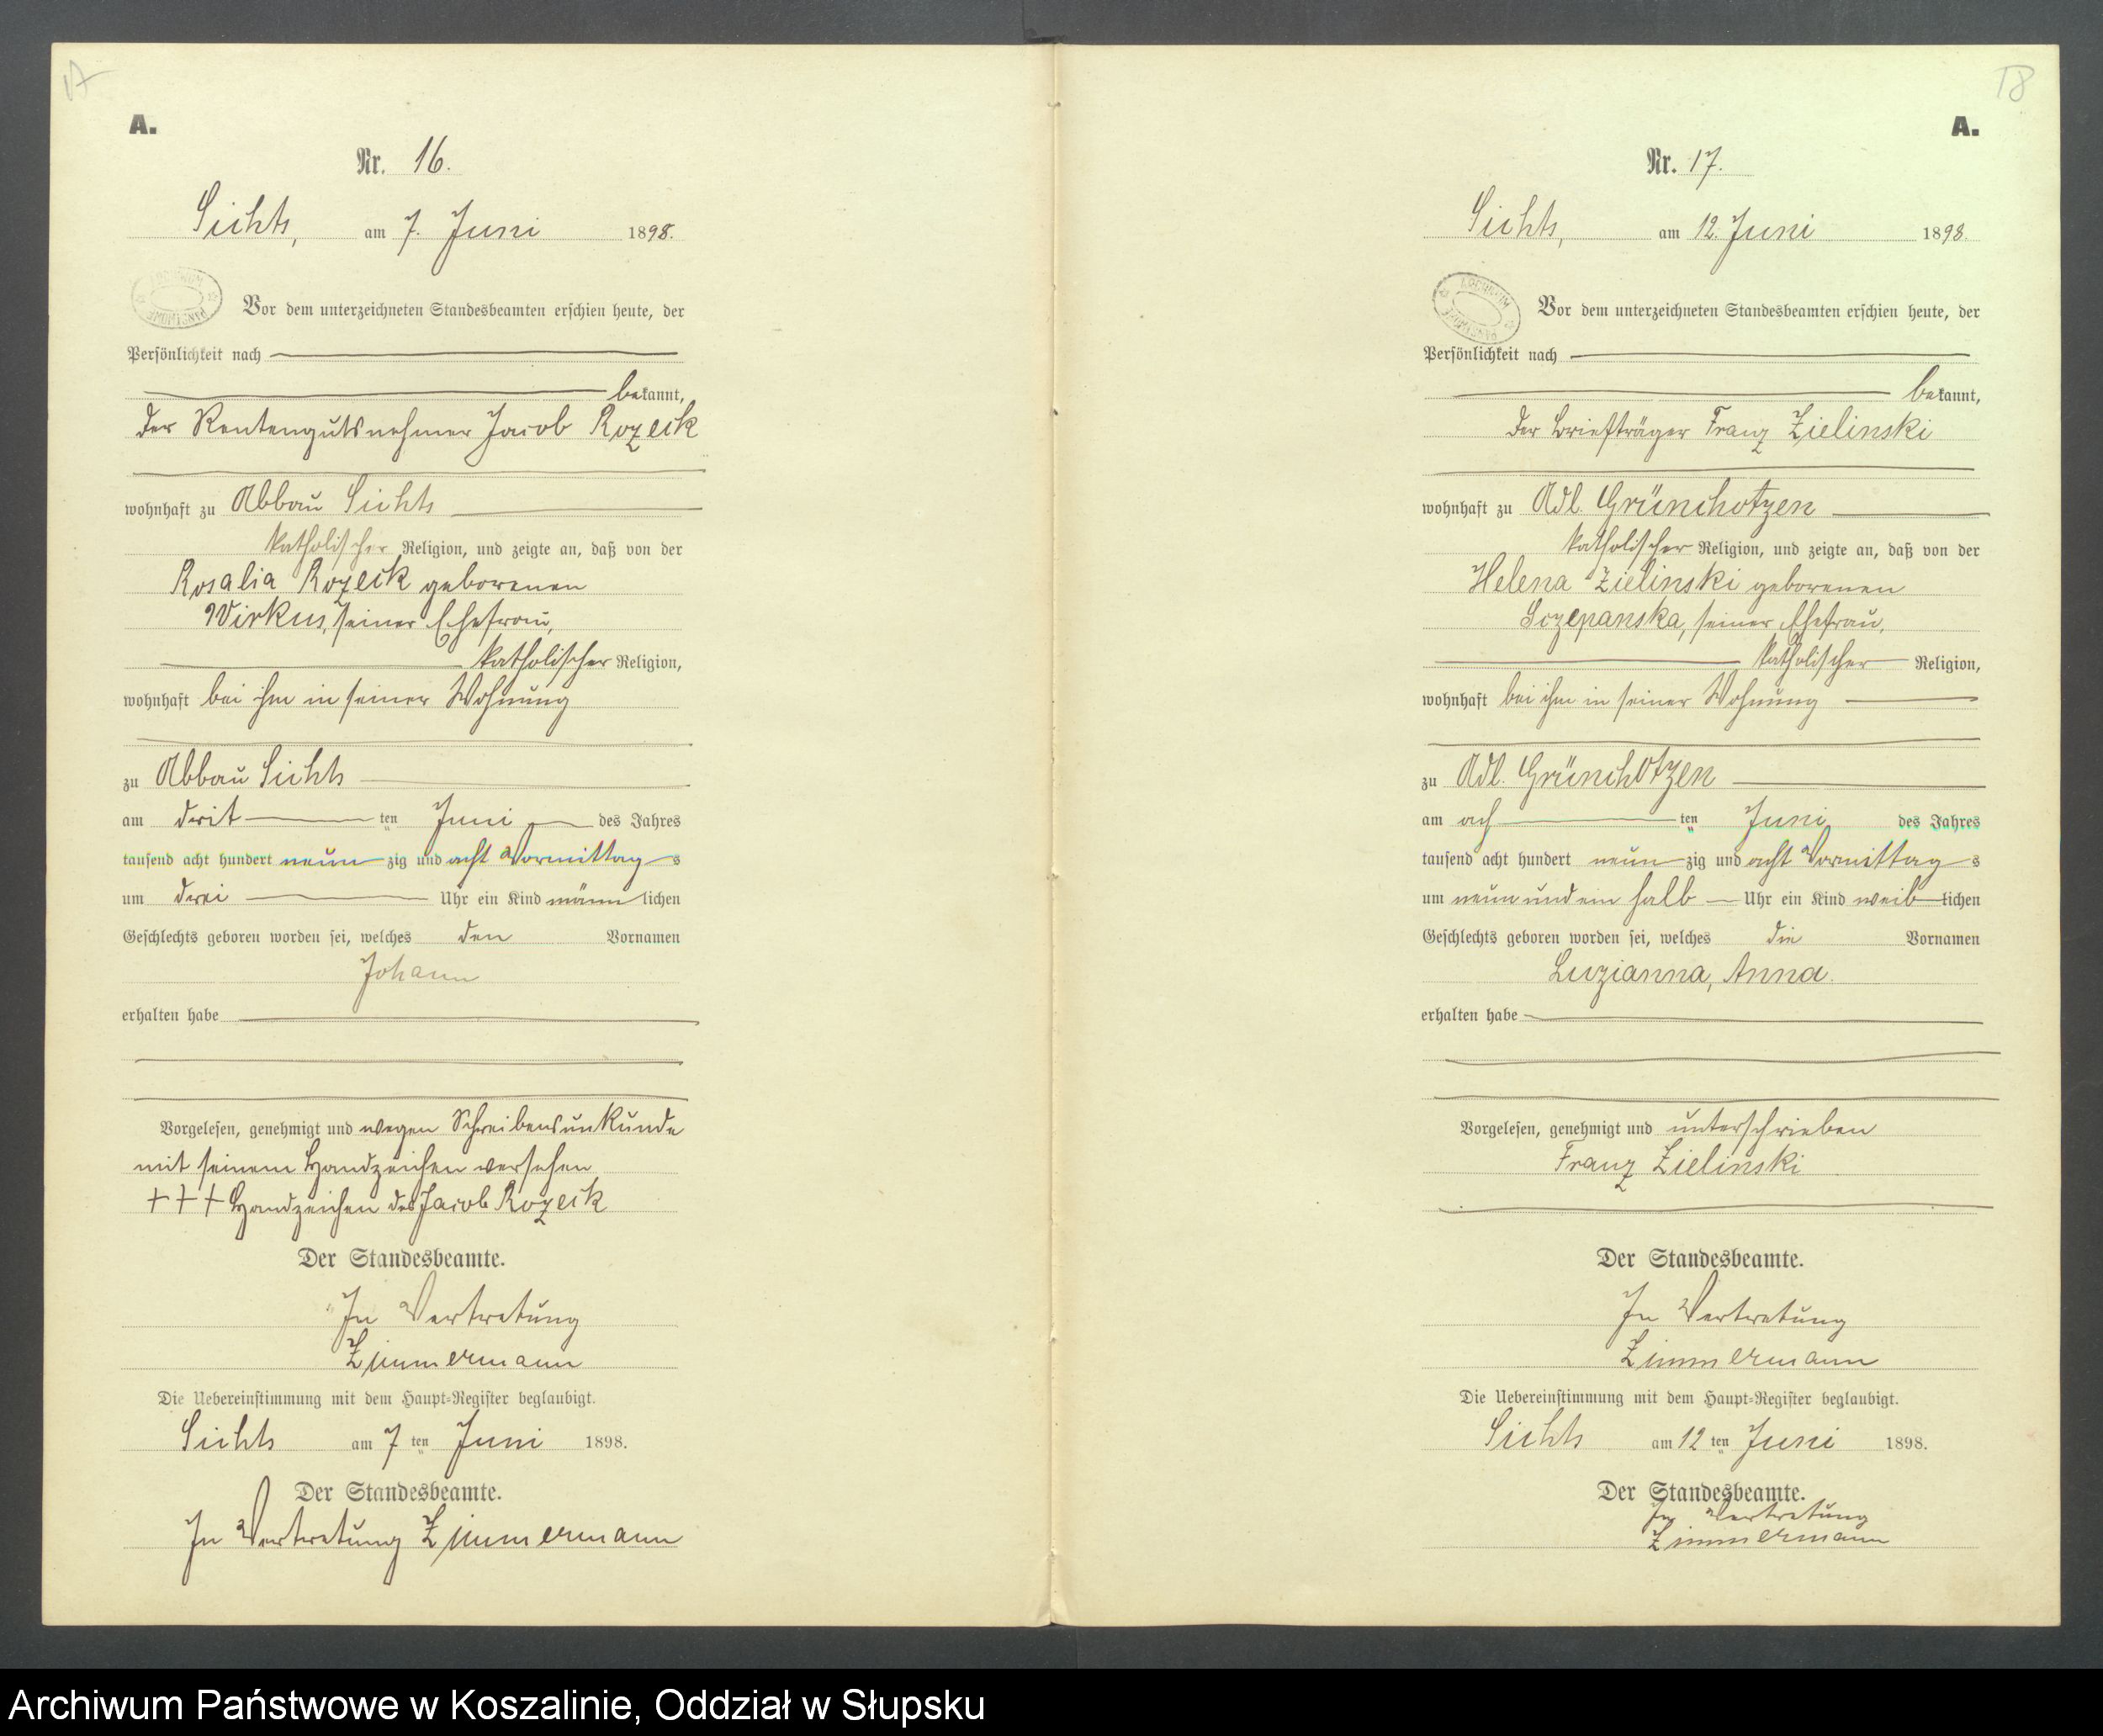 17
A.
Nr. 16.
Sichts, am 7. Juni 1898.
ARCHIWUM PAŃSTWOWE
Vor dem unterzeichneten Standesbeamten erschien heute, der
Persönlichkeit nach
bekannt,
der Rentengutsnehmer Jacob Rozeik
wohnhaft zu Abbau Sichts
katholischer Religion, und zeigte an, daß von der
Rosalia Rozeik geborenen
Wirkus, seiner Ehefrau,
katholischer Religion,
wohnhaft bei ihm in seiner Wohnung
zu Abbau Sichts
am drit ten Juni des Jahres
tausend acht hundert neun zig und acht Vormittag s
um drei Uhr ein Kind männ lichen
Geschlechts geboren worden sei, welches den Vornamen
Johann
erhalten habe
Vorgelesen, genehmigt und wegen Schreibensunkunde
mit seinem Handzeichen versehen
+++ Handzeichen des Jacob Rozeik
Der Standesbeamte.
In Vertretung
Zimmermann
Die Uebereinstimmung mit dem Haupt-Register beglaubigt.
Sichts am 7 ten Juni 1898.
Der Standesbeamte.
In Vertretung Zimmermann
18
A.
Nr. 17.
Sichts, am 12. Juni 1898.
ARCHIWUM PAŃSTWOWE
Vor dem unterzeichneten Standesbeamten erschien heute, der
Persönlichkeit nach
bekannt,
der Briefträger Franz Zielinski
wohnhaft zu Adl. Grünchotzen
katholischer Religion, und zeigte an, daß von der
Helena Zielinski geborenen
Sczepanska, seiner Ehefrau,
katholischer Religion,
wohnhaft bei ihm in seiner Wohnung
zu Adl. Grünchotzen
am ach ten Juni des Jahres
tausend acht hundert neun zig und acht Vormittag s
um neun und ein halb Uhr ein Kind weib lichen
Geschlechts geboren worden sei, welches die Vornamen
Luzianna, Anna.
erhalten habe
Vorgelesen, genehmigt und unterschrieben
Franz Zielinski
Der Standesbeamte.
In Vertretung
Zimmermann
Die Uebereinstimmung mit dem Haupt-Register beglaubigt.
Sichts am 12 ten Juni 1898.
Der Standesbeamte.
In Vertretung
Zimmermann
Archiwum Państwowe w Koszalinie, Oddział w Słupsku